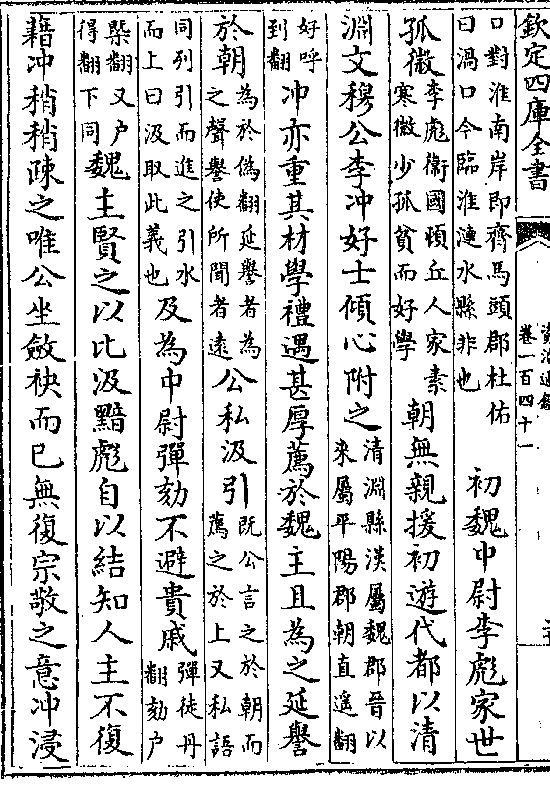 欽定四庫全書
資治通鑑
卷一百四十一
口對淮南岸即齊馬頭郡杜佑
曰渦口今臨淮漣水縣非也
初魏中尉李彪家世
孤微
李彪衛國頓丘人家素
寒微少孤貧而好學
朝無親援初遊代都以清
淵文穆公李沖好士傾心附之
清淵縣漢屬魏郡晉以
來屬平陽郡朝直遥翻
好呼
到翻
沖亦重其材學禮遇甚厚薦於魏主且為之延譽
於朝
為於偽翻延譽者為
之聲譽使所聞者逺
公私汲引
既公言之於朝而
薦之於上又私語
同列引而進之引水
而上曰汲取此義也
及為中尉彈劾不避貴戚
彈徒丹
翻劾户
槩翻又户
得翻下同
魏主賢之以比汲黯彪自以結知人主不復
藉沖稍稍疎之唯公坐斂袂而已無復宗敬之意沖浸